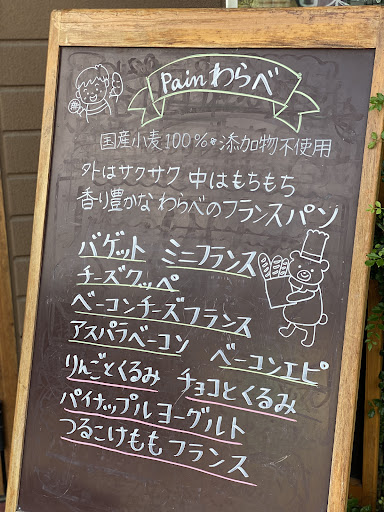 Painわらべ
国産小麦100%*添加物不使用
外はサクサク 中はもちもち
香り豊かなわらべのフランスパン
バゲット ミニフランス
チーズクッペ
ベーコンチーズフランス
アスパラベーコン
ベーコンエピ
りんごとくるみ チョコとくるみ
パイナップルヨーグルト
つるこけももフランス